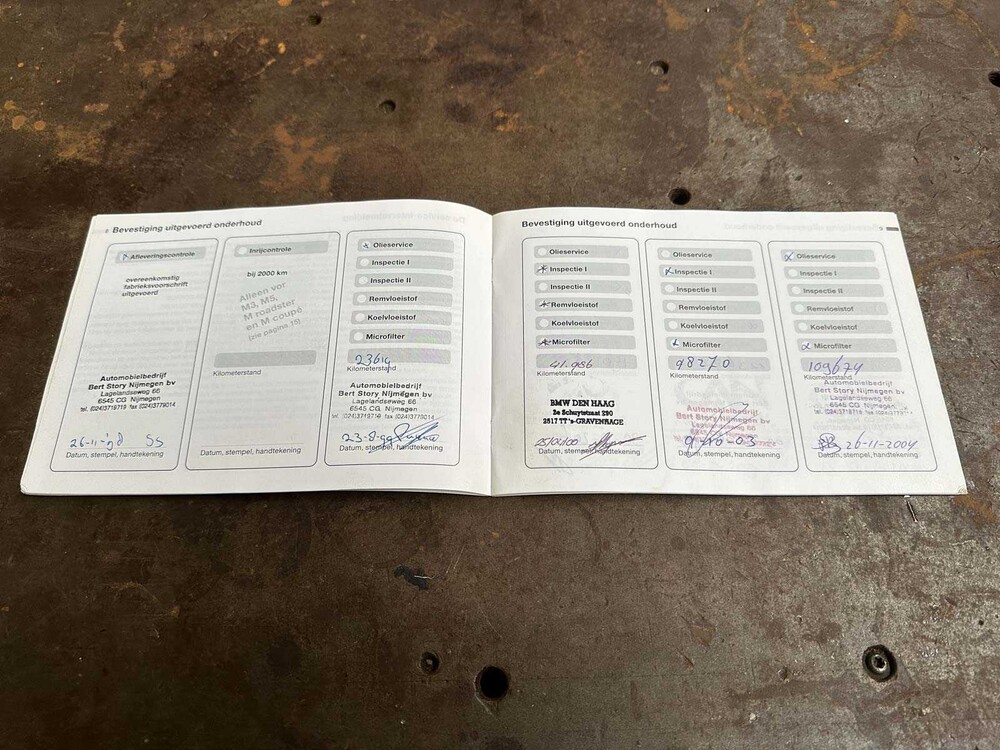 8 Bevestiging uitgevoerd onderhoud
Afleveringscontrole
overeenkomstig
fabrieksvoorschrift
uitgevoerd
Automobielbedrijf
Bert Story Nijmegen bv
Lagelandseweg 66
6545 CG Nijmegen
tel. (024)3719719 fax (024)3779014
26-11-98 SS
Datum, stempel, handtekening
Inrijcontrole
bij 2000 km
Alleen vor
M3, M5,
M roadster
en M coupé
(zie pagina 15)
Kilometerstand
Datum, stempel, handtekening
Olieservice
Inspectie I
Inspectie II
Remvloeistof
Koelvloeistof
Microfilter
23619
Kilometerstand
Automobielbedrijf
Bert Story Nijmegen bv
Lagelandseweg 66
6545 CG Nijmegen
tel. (024)3719719 fax (024)3779014
23-8-99
Datum, stempel, handtekening
Bevestiging uitgevoerd onderhoud 9
Olieservice
Inspectie I
Inspectie II
Remvloeistof
Koelvloeistof
Microfilter
41.986
Kilometerstand
BMW DEN HAAG
2e Schuytstraat 290
2517 TT 's-GRAVENHAGE
Datum, stempel, handtekening
Olieservice
Inspectie I
Inspectie II
Remvloeistof
Koelvloeistof
Microfilter
98270
Kilometerstand
Automobielbedrijf
Bert Story Nijmegen bv
Lagelandseweg 66
6545 CG Nijmegen
9-10-03
Datum, stempel, handtekening
Olieservice
Inspectie I
Inspectie II
Remvloeistof
Koelvloeistof
Microfilter
109674
Kilometerstand
Automobielbedrijf
Bert Story Nijmegen bv
Lagelandseweg 66
6545 CG Nijmegen
26-11-2004
Datum, stempel, handtekening